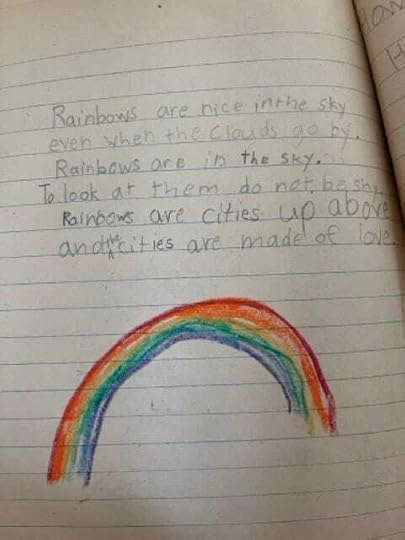 Rainbows are nice in the sky
even when the Clouds go by.
Rainbows are in the sky.
To look at them do not be shy
Rainbows are cities up above
and the cities are made of love.